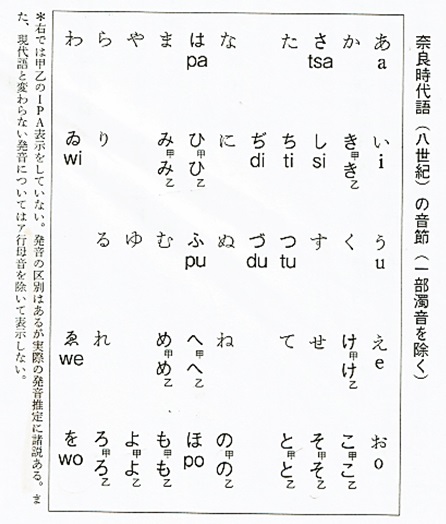 奈良時代語（八世紀）の音節（一部濁音を除く）
あa いi うu えe おo
か き甲き乙 く け甲け乙 こ甲こ乙
さtsa しsi す せ そ甲そ乙
た ちti つtu て と甲と乙
ぢdi づdu
な に ぬ ね の甲の乙
はpa ひ甲ひ乙 ふpu へ甲へ乙 ほpo
ま み甲み乙 む め甲め乙 も甲も乙
や ゆ よ甲よ乙
ら り る れ ろ甲ろ乙
わ ゐwi ゑwe をwo
＊右では甲乙のIPA表示をしていない。発音の区別はあるが実際の発音推定に諸説ある。ま
た、現代語と変わらない発音についてはア行母音を除いて表示しない。